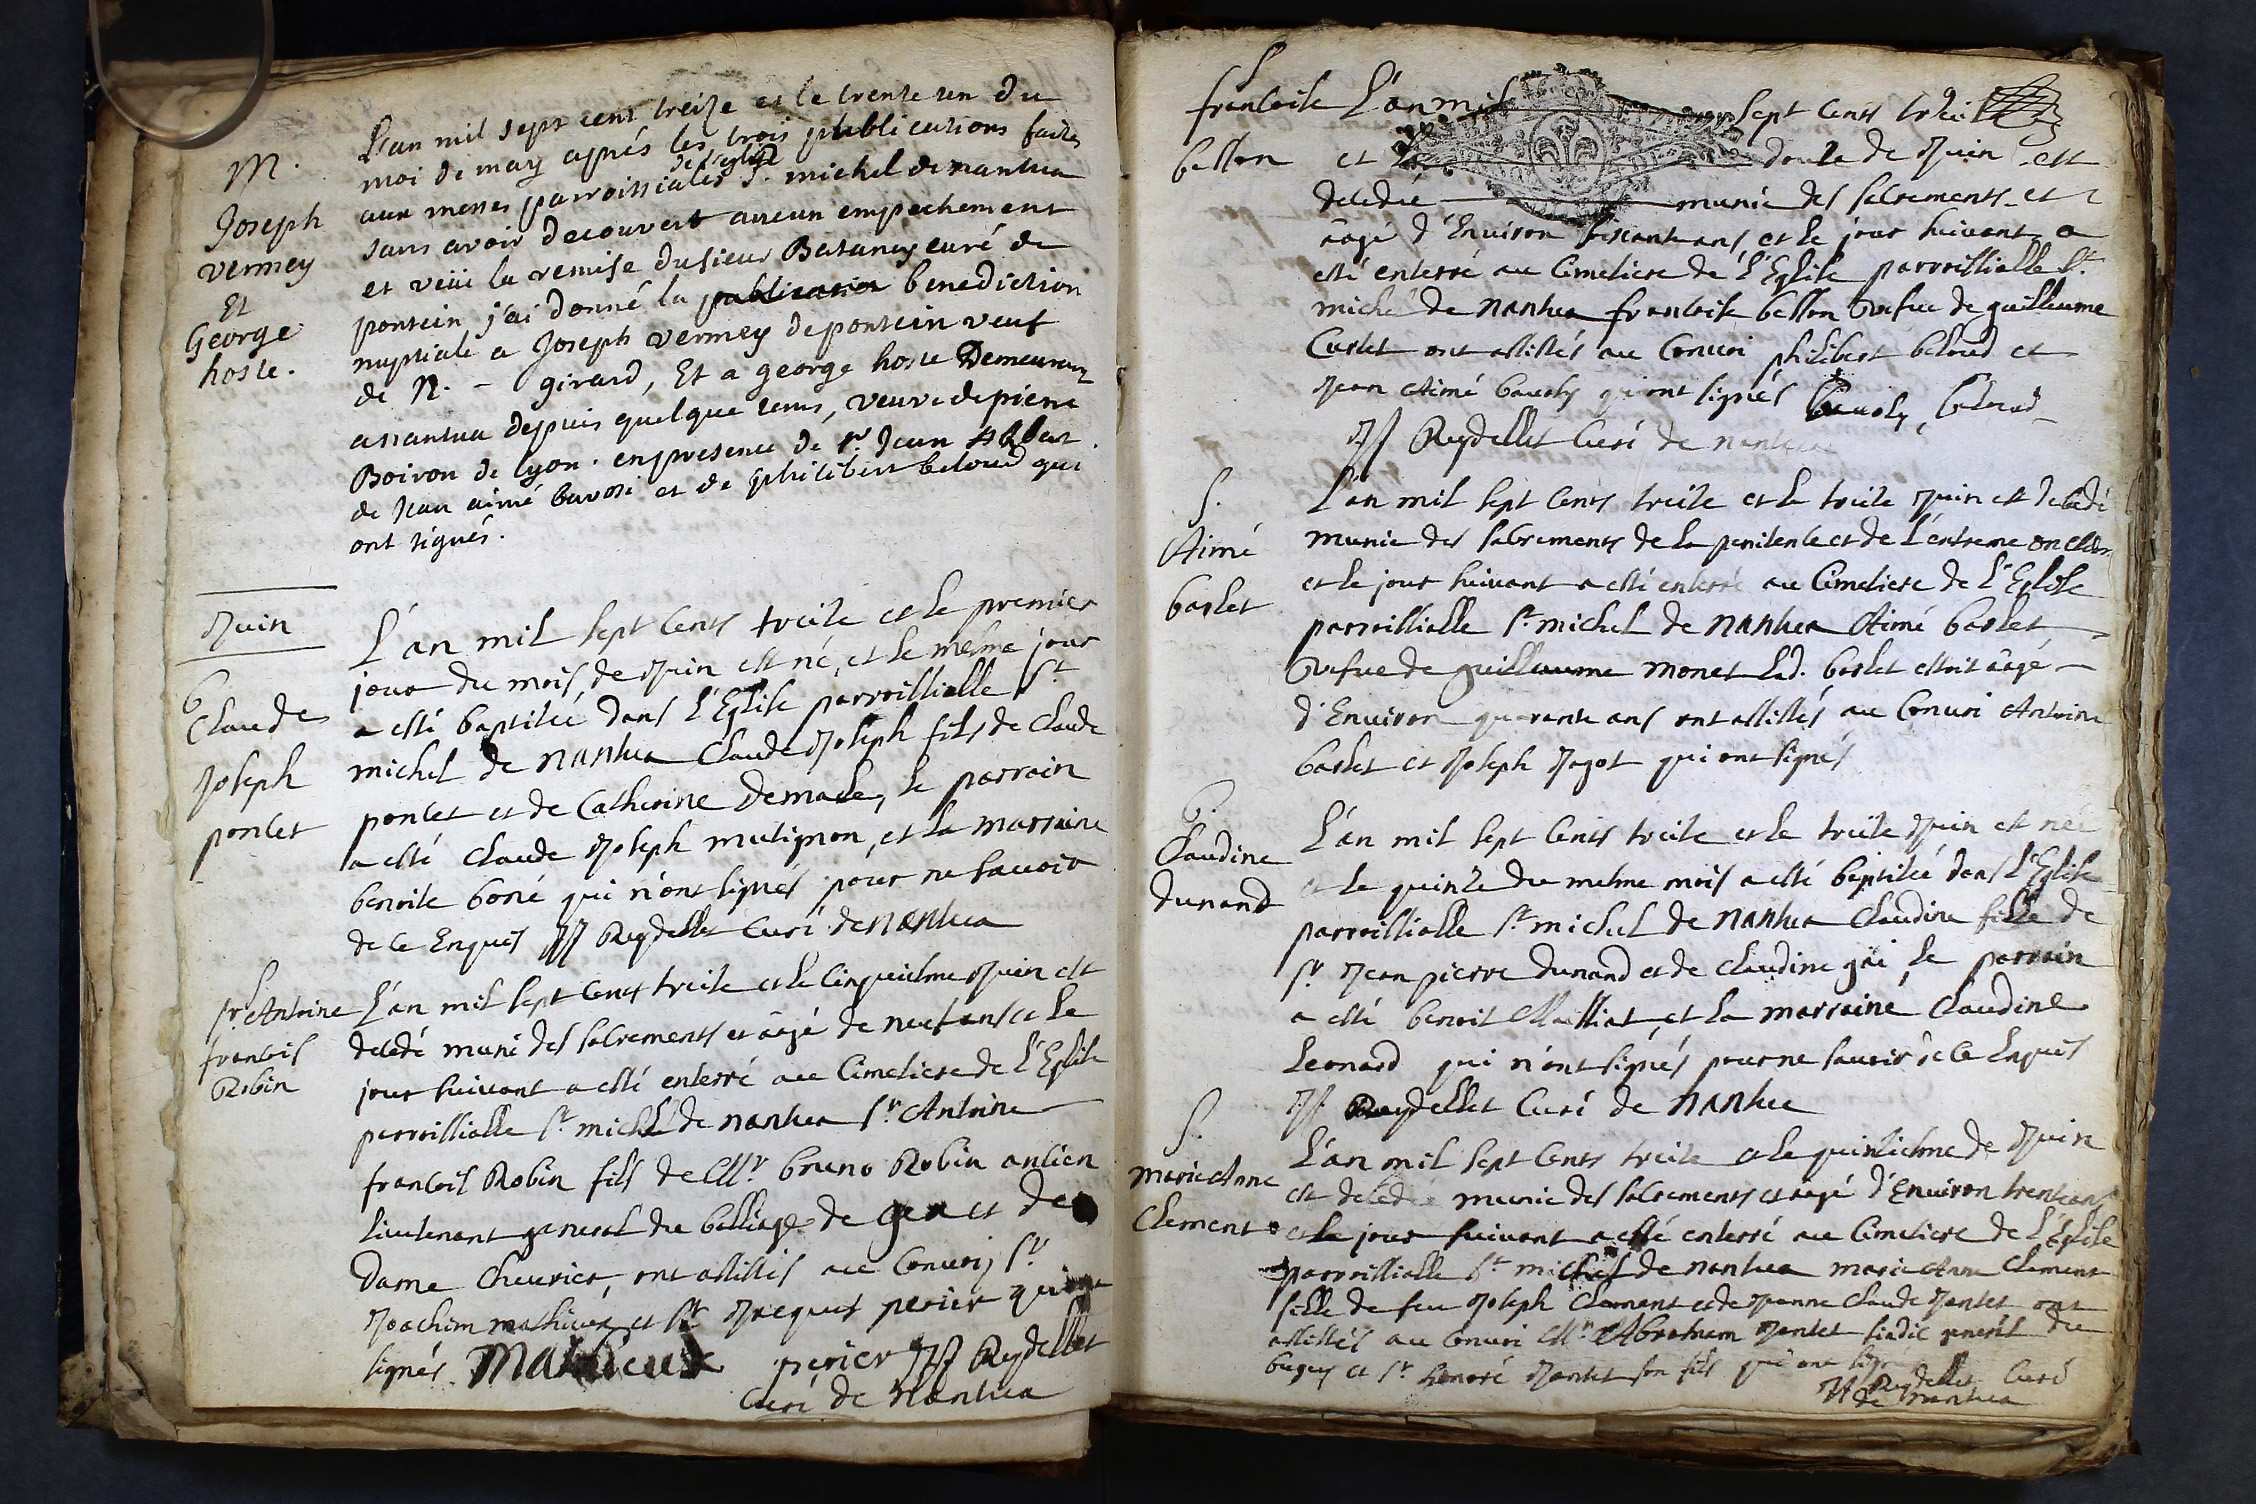 M.
Joseph
vermey
Et
George
hoste.
L'an mil sept cent treize et le trente un du
moi de may aprés les trois publications faites
de l'eglise
aux messes parroissiales St. michel de nantua
sans avoir decouvert aucun empechement
et veüi la remise du sieur Bataney curé de
pontein j'ai donné la publication benediction
nuptiale a Joseph vermey de pontein veuf
de N. - girard, Et a george hoste Demeurant
a nantua depuis quelque tems, veuve de pierre
Boiron de lyon. en presence de Sr. Jean
de Jean aimé bavosi et de philibert beloud qui
ont signés.
Juin
b
Claude
Joseph
poncet
L'an mil sept cents treize et le premier
jour du mois de Juin est né, et le mesme jour
a esté baptiseé dans l'Eglise parroissialle St
michel de nantua Claude Joseph fils de Claude
poncet et de Catherine Demade, le parrain
a esté Claude Joseph mutignon, et la marraine
benoite boné qui n'ont signés pour ne sauoir
de ce Enquis JJ Reydellet Curé de nantua
S
Sr. Antoine
francois
Robin
L'an mil sept cents treize et le cinquiesme Juin est
decedé muni des sacrements et aagé de neuf ans et le
jour suivant a esté enterré au Cimetiere de l'Eglise
parroissialle St. michel de nantua Sr. Antoine
francois Robin fils de Mr. bruno Robin ancien
lieutenant general du balliage de gex et de
Dame Cheurier, ont assistés au Conuoi, Sr
Joachim mathieux et Sr. Jacques perier qui ont
signés. Mathieux perier JJ Reydellet
Curé de Nantua
S
francoise
bellon
L'an mil sept cents treize
et le douze de Juin est
decedeé munie des sacrements et
aagé d'Enuiron soixante ans et le jour suivant a
esté enterré au Cimetiere de l'Eglise parroissialle St.
michel de nantua francoise bellon vefue de guilleaume
Curtet ont assistés au Conuoi philibert beloud et
Jean Aimé bauosy qui ont signés bauosy, beloud
JJ Reydellet Curé de nantua
S.
Aimé
barlet
L'an mil sept cents treize et le treize Juin est decedé
munie des sacrements de la penitence et de l'extreme onction
et le jour suivant a esté enterré au Cimetiere de l'Eglise
parroissialle St. michel de nantua Aimé barlet
vefue de guilleaume monet Lad. barlet estoit aagé
d'Enuiron quarante ans ont assistés au Conuoi Antoine
barlet et Joseph Jagot qui ont signés
b.
Claudine
dunand
L'an mil sept cents treize et le treize Juin est neé
et le quinze du mesme mois a esté baptiseé dans l'Eglise
parroissialle St. michel de nantua Claudine fille de
Sr. Jean pierre dunand et de claudine gäi le parrain
a esté benoit Mailliat et la marraine Claudine
Leonard qui n'ont signés pour ne sauoir de ce Enquis
JJ Reydellet Curé de nantua
S.
marie Anne
Clement
L'an mil sept cents treize et le quinziesme de Juin
est decedeé munie des sacrements et aagé d'Enuiron trente ans
et le jour suivant a esté enterré au Cimetiere de l'Eglise
parroissialle St. michel de nantua marie Anne Clement
fille de feu Joseph Clement et de Jeanne Claude Jantet ont
assistés au Conuoi Mr. Abraham Jantet sindic general du
bugey et Sr. honoré Jantet son fils qui ont signés
JJ Reydellet Curé
de nantua